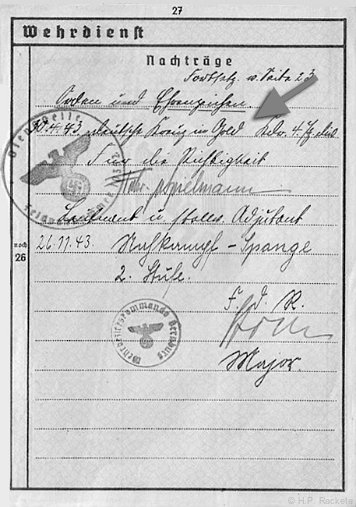 27
Wehrdienst
Nachträge
Fortsetz. v. Seite 23
Orden und Ehrenzeichen.
30.4.43 deutsche Kreuz in Gold Kdr. 4. Jg. div.
Für die Richtigkeit
Leutnant u. Adjutant
noch
26
26.11.43. Nahkampf-Spange
2. Stufe.
F. d. R.
Major.
Dienststelle
Wehrbezirkskommando
© H.P. Rockets